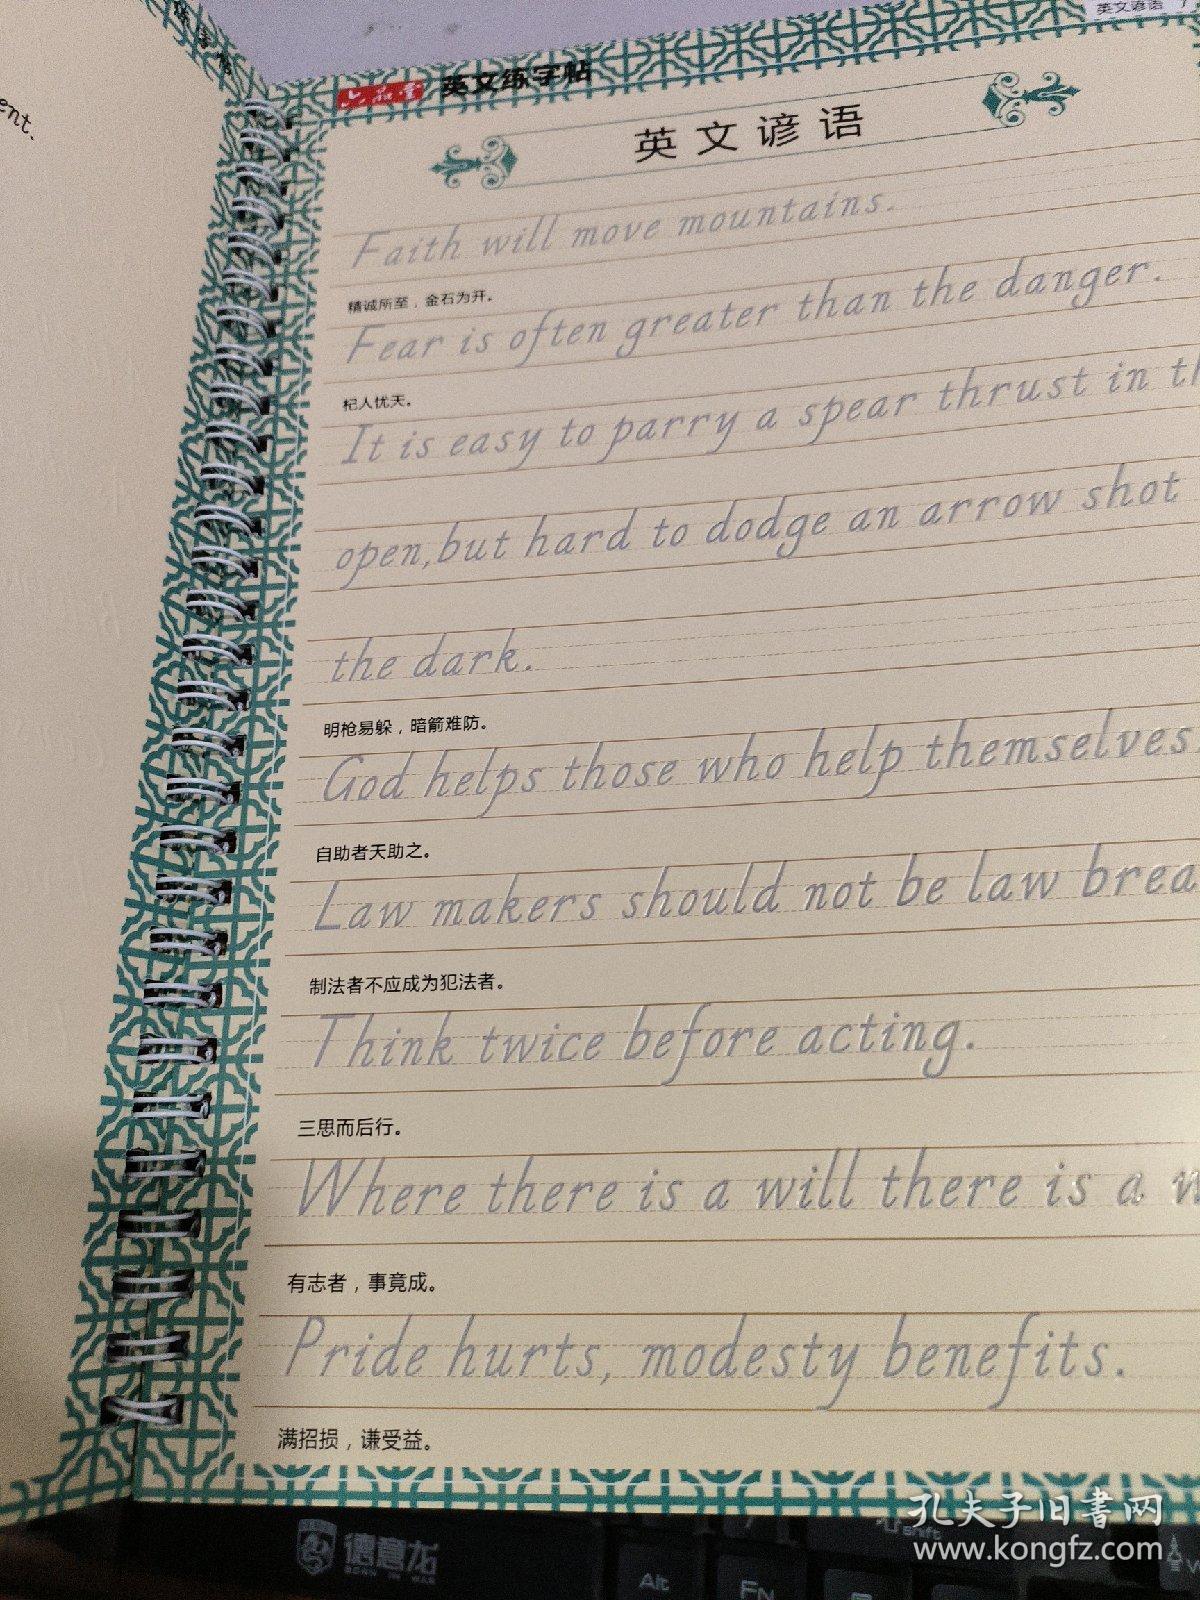 英文谚语
ent.
六品堂 英文练字帖
英文谚语
Faith will move mountains.
精诚所至，金石为开。
Fear is often greater than the danger.
杞人忧天。
It is easy to parry a spear thrust in
open,but hard to dodge an arrow shot
the dark.
明枪易躲，暗箭难防。
God helps those who help themselves
自助者天助之。
Law makers should not be law
制法者不应成为犯法者。
Think twice before acting.
三思而后行。
Where there is a will there is a
有志者，事竟成。
Pride hurts, modesty benefits.
满招损，谦受益。
孔夫子旧书网
www.kongfz.com
德意龙
shift
Alt
FN